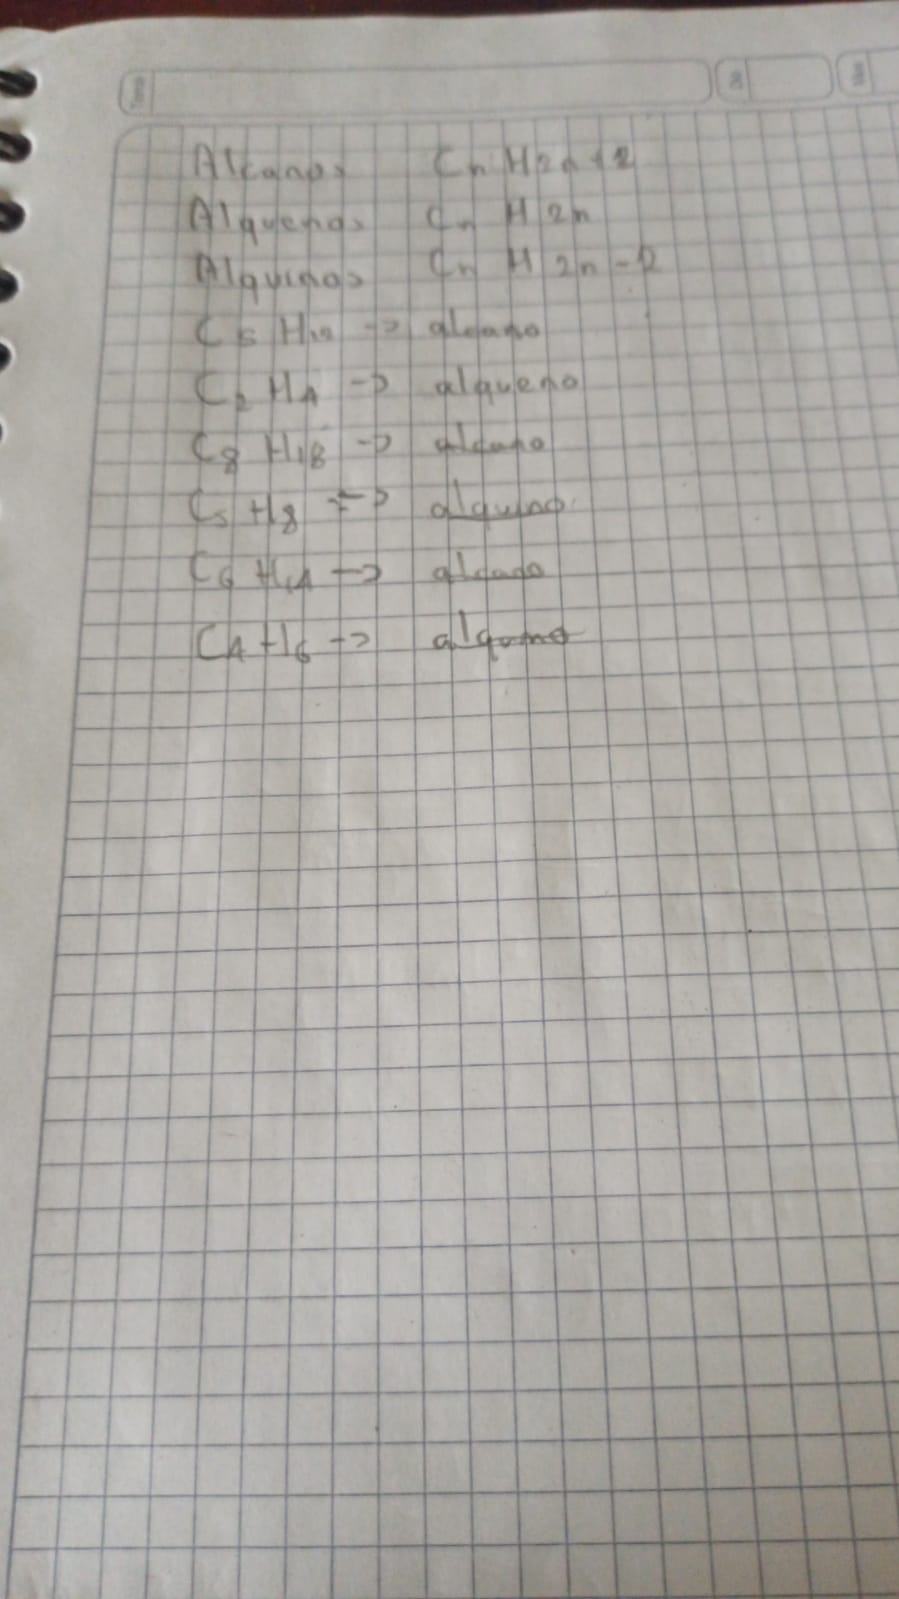 Alcanos CnH2n+2
Alquenos CnH2n
Alquinos CnH2n-2
C5H12 -> alcano
C2H4 -> alqueno
C8H18 -> alcano
C5H8 -> alquino
C6H14 -> alcano
C4H6 -> alquino